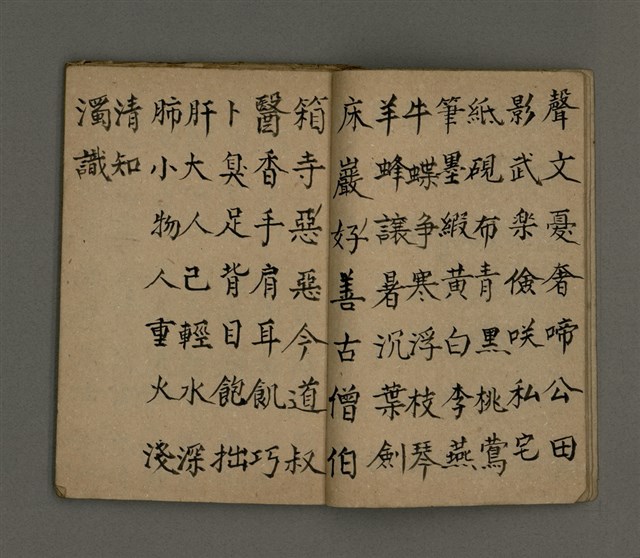 聲文憂奢啼公田
影武楽儉咲私宅
紙硯布青黒桃鶯
筆墨緞黄白李燕
牛蝶争寒浮枝琴
羊蜂讓暑沉葉劍
床巖好善古僧伯
箱寺惡惡今道叔
醫香手肩耳飢巧
卜臭足背目飽拙
肝大人己輕水深
肺小物人重火淺
清知
濁識